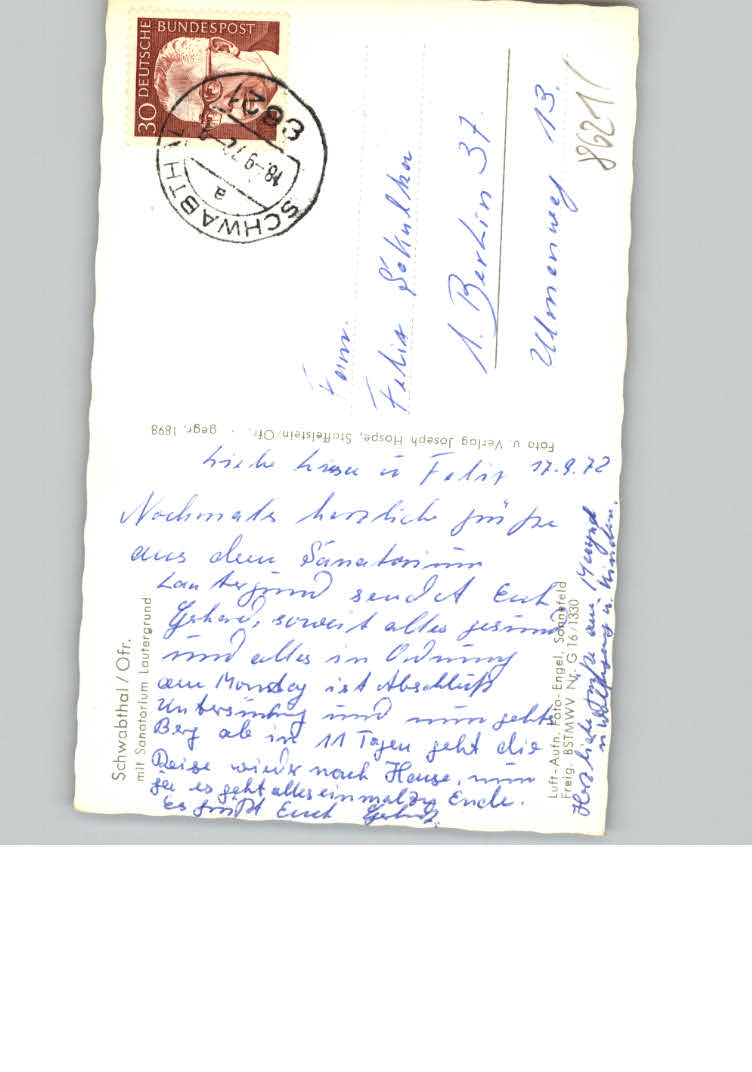 DEUTSCHE BUNDESPOST
30
SCHWABTH
8621
18.-9.72
a
Fam.
Felix Schulker
1. Berlin 37.
Ulmenweg 13.
8621/
Foto u. Verlag Joseph Hospe, Staffelstein/Ofr. · gegr. 1898
Schwabthal / Ofr.
mit Sanatorium Lautergrund
Luft-Aufn. Foto-Engel, Sonnefeld
Freig. BSTMWV Nr. G 16/1330
17.9.72
Liebe u Felix
Nochmals herzliche Grüße
aus dem Sanatorium
Lautergrund sendet Euch
Gerhard, soweit alles gesund
und alles in Ordnung
am Montag ist Abschluß
Untersuchung und nun gehts
Berg ab in 11 Tagen geht die
Reise wieder nach Hause, nun
ja es geht alles einmal zu Ende.
Es grüßt Euch Gerhard.
Herzliche Grüße an
u Wolfgang u. Kinder.